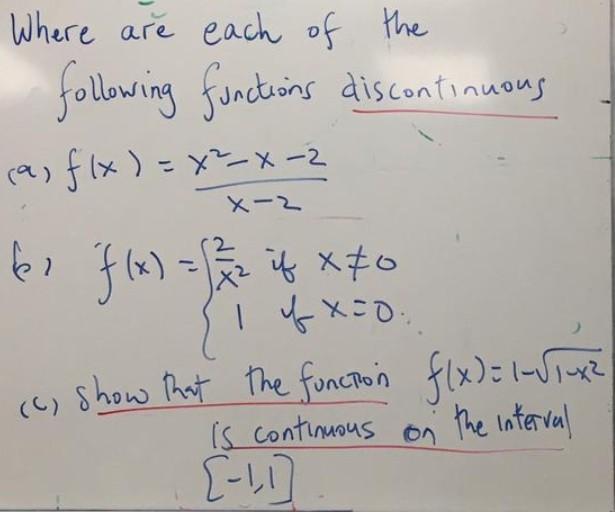 Where are each of the
following functions discontinuous
(a) f(x) = x²-x-2
x-2
b) f(x) = { 2/x² if x≠0
1 if x=0.
(c) show that the function f(x)=1-√1-x²
is continuous on the interval
[-1,1]